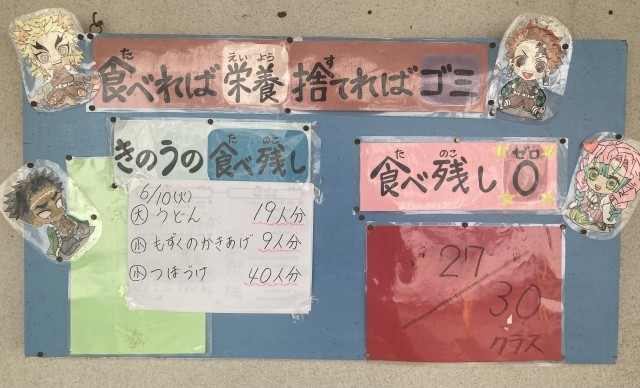 食べれば栄養捨てればゴミ
きのうの食べ残し
6/10(火)
大 うどん 19人分
小 もずくのかきあげ 9人分
小 つぼづけ 40人分
食べ残し0
27/30
クラス